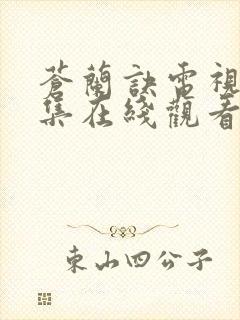 蒼蘭訣電視
集在綫觀看
東山四公子